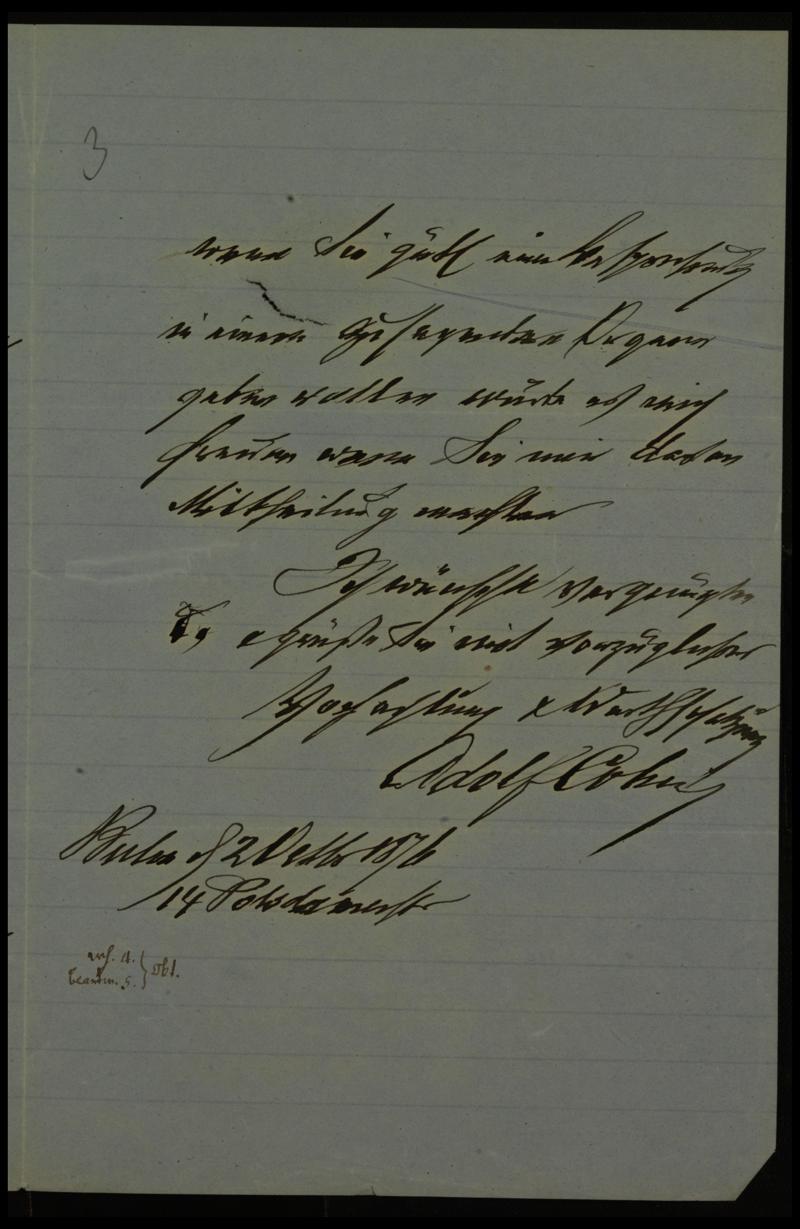 3
wenn Sie gütl eine Besprechung
in einem Organe
geben wollten würde es mich
freuen wenn Sie mir davon
Mittheilung machten
Ich wünsche Vergnügen
& grüße Sie mit vorzüglicher
Hochachtung & Werthschätzung
Adolf
Berlin d 2 Octbr 1876
14 Potsdamerstr
erh. 4.
beantw. 5. } Obt.